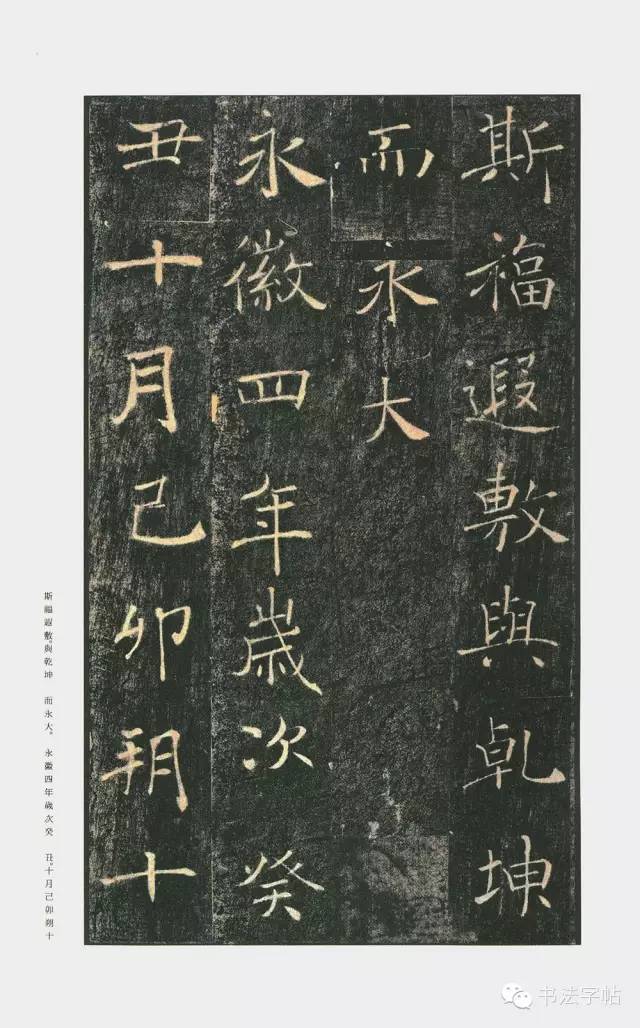 斯福遐敷與乾坤
而永大
永徽四年歲次癸
丑十月己卯朔十
斯福遐敷。與乾坤 而永大。 永徽四年歲次癸 丑。十月己卯朔十
书法字帖